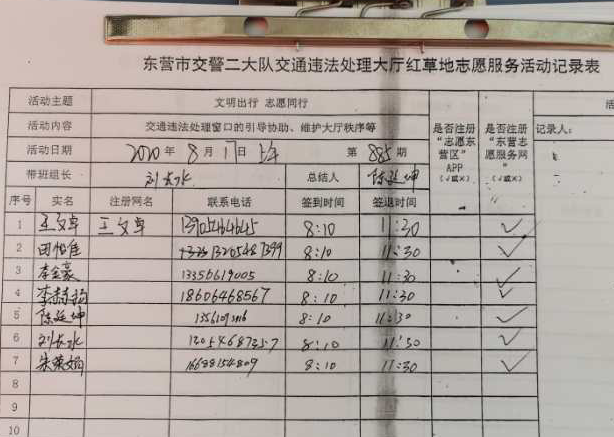 东营市交警二大队交通违法处理大厅红草地志愿服务活动记录表
活动主题 文明出行 志愿同行
活动内容 交通违法处理窗口的引导协助、维护大厅秩序等
活动日期 2020年8月17日 上午 第885期
带班组长 刘长水 总结人 陈延坤
是否注册“志愿东营区”APP（√或×）
是否注册“东营志愿服务网”（√或×）
记录人：
序号 实名 注册网名 联系电话 签到时间 签退时间
1 王文卓 王文卓 8:10 11:30 √
2 13205487399 8:10 11:30 √
3 李金豪 13356619005 8:10 11:30 √
4 18606468567 8:10 11:30 √
5 陈延坤 8:10 11:30 √
6 刘长水 8:10 11:50 √
7 朱荣娟 16688154809 8:10 11:30 √
8
9
10